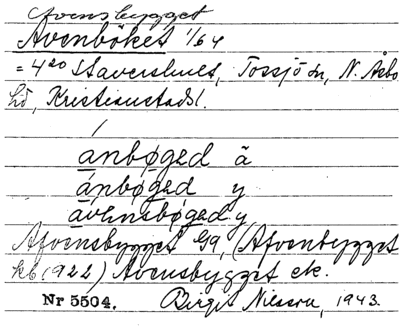 Avensbygget
Avenböket 1/64
= 4²⁰ Stavershult, Tossjö sn, N. Åsbo
hd, Kristianstads l.
ánbøged ä
ánbøged y
ávensbøged y
Afvensbygget (Afvenbygget
kb 1922) Avensbygget ek.
Nr 5504. Birgit Nilsson, 1943.